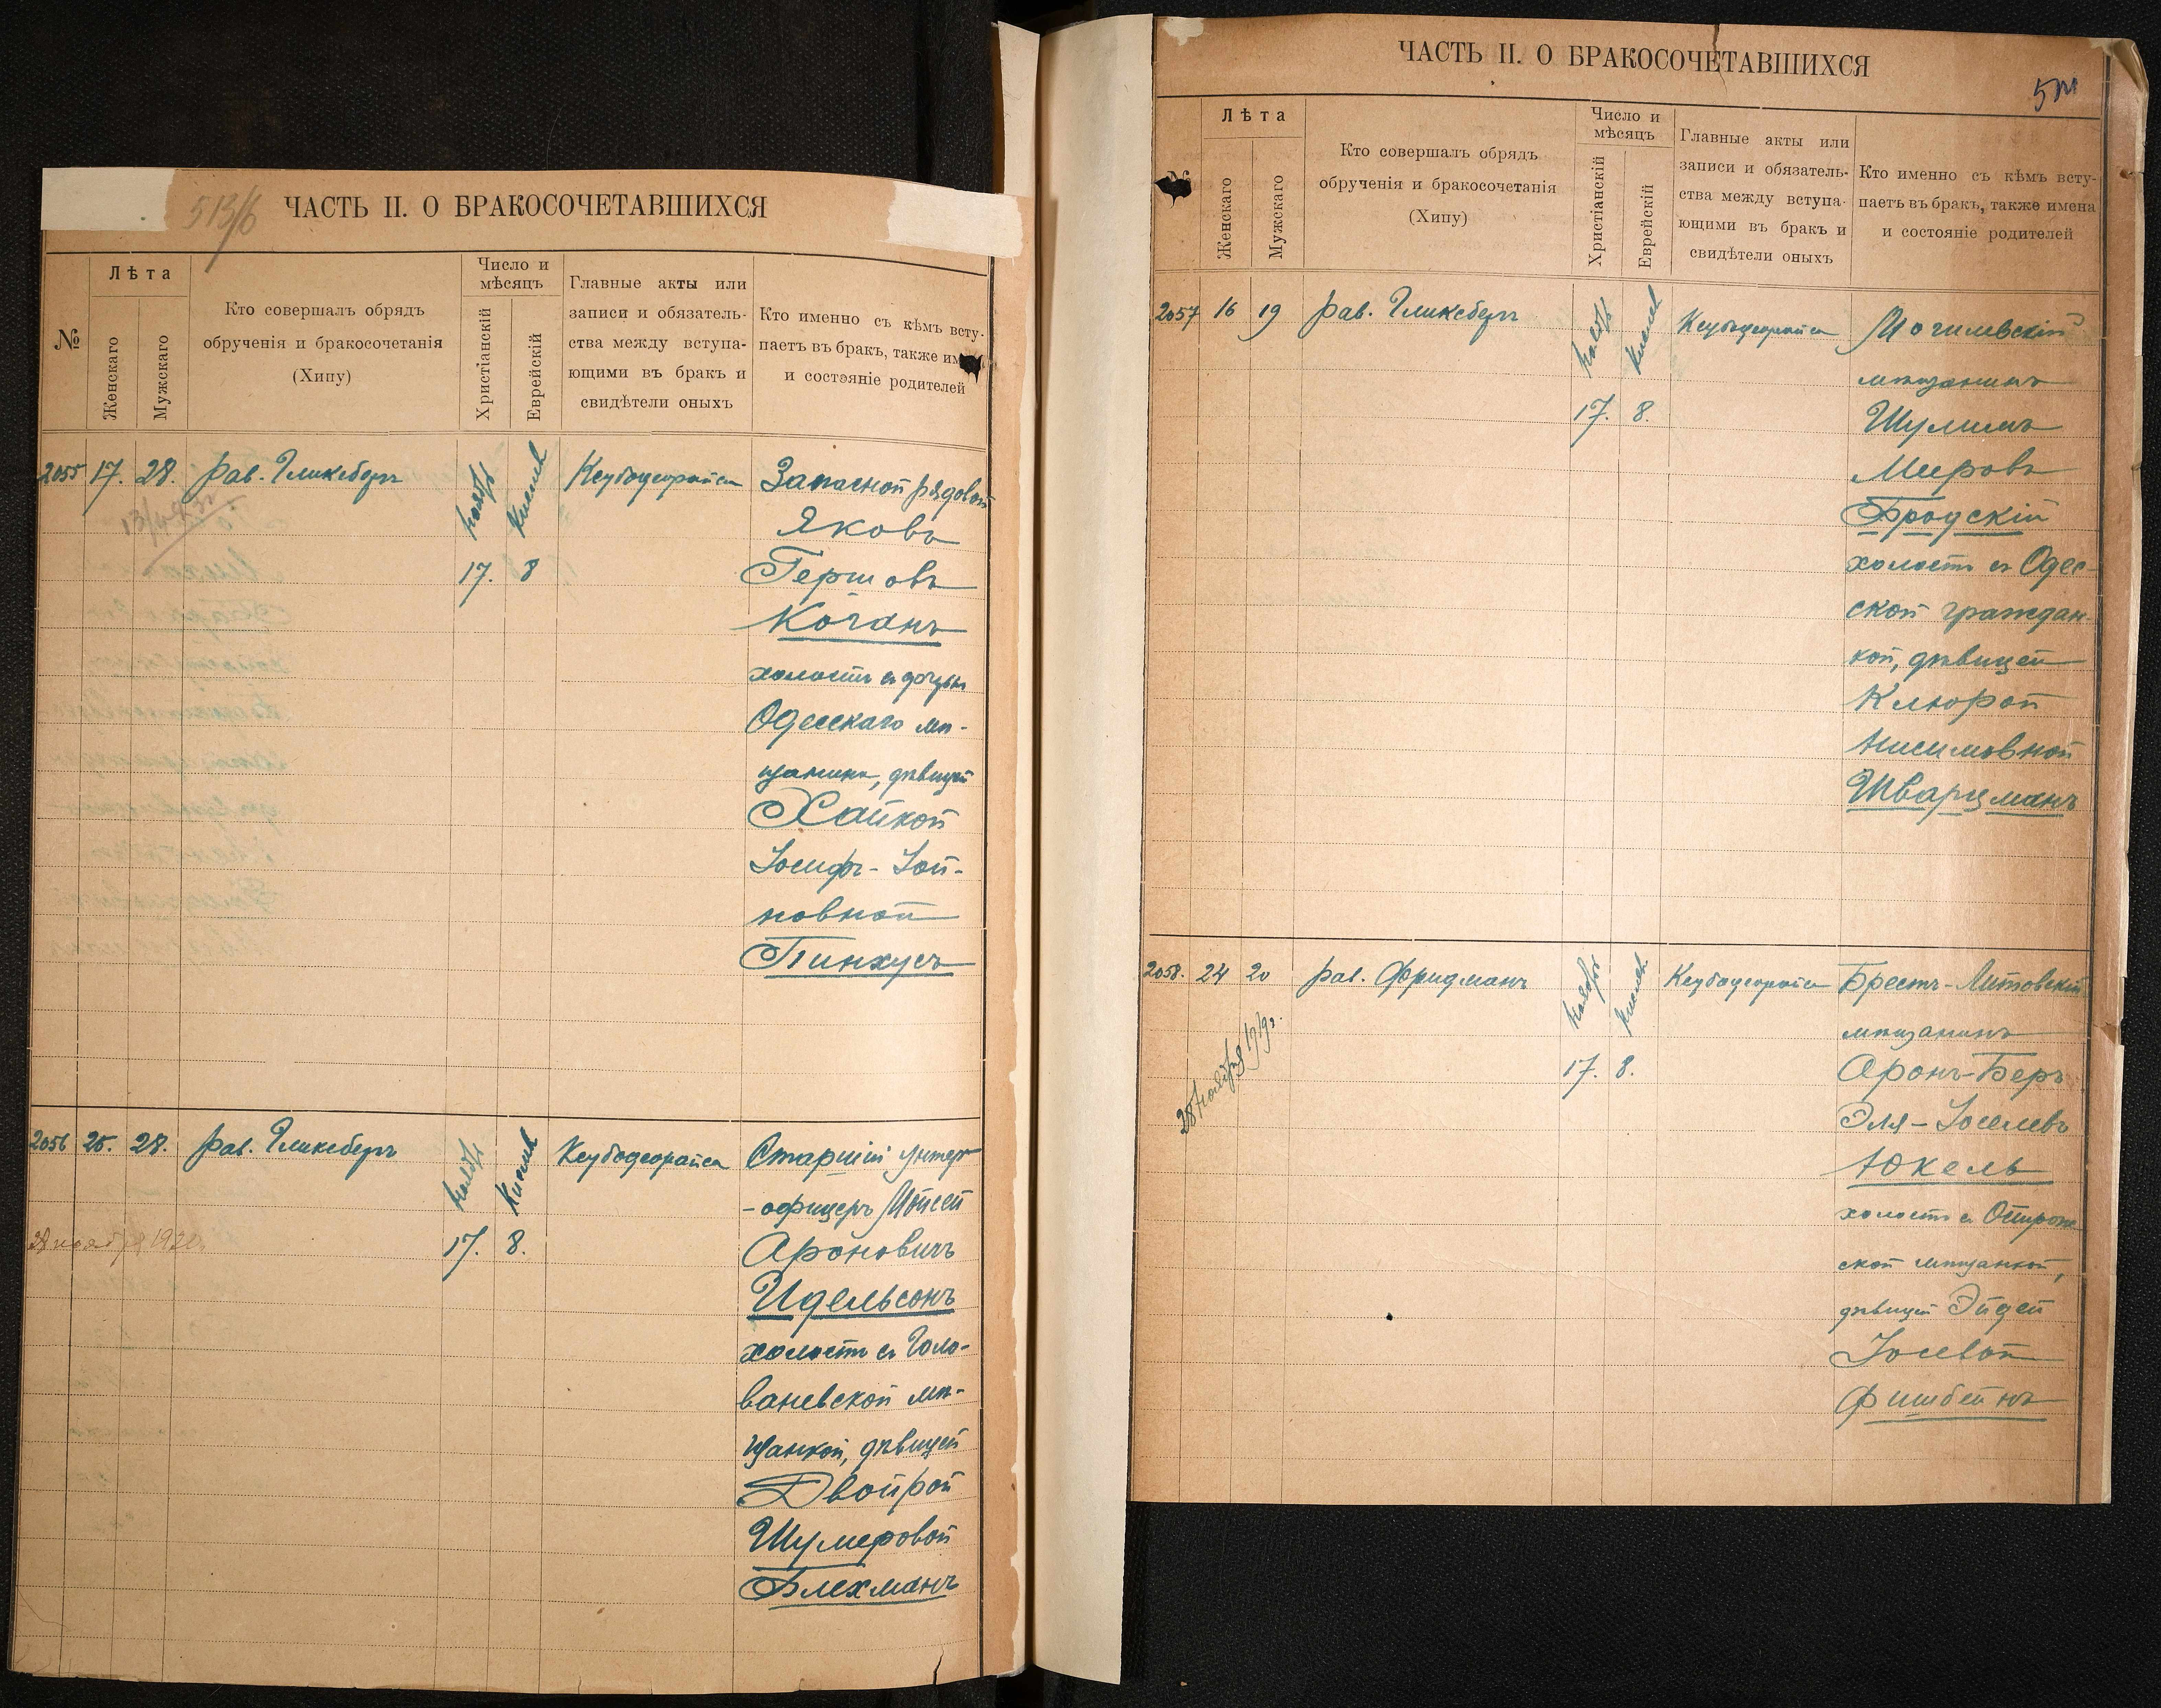 513/б
ЧАСТЬ II. О БРАКОСОЧЕТАВШИХСЯ
№
Лѣта
Женскаго
Мужскаго
Кто совершалъ обрядъ
обрученія и бракосочетанія
(Хипу)
Число и
мѣсяцъ
Христіанскій
Еврейскій
Главные акты или
записи и обязатель-
ства между вступа-
ющими въ бракъ и
свидѣтели оныхъ
Кто именно съ кѣмъ всту-
паетъ въ бракъ, также им
и состояніе родителей
2055 17. 28. Рав. Гликсбергъ
Ноябрь
Кислев
17. 8
Запасной рядовой
Яковъ
Гершовъ
Коганъ
холостъ съ дочерью
Одесскаго мѣ-
щанина, дѣвицей
Хайкой
Іосифъ-Зой-
новной
Пинхусъ
2056 25. 28. Рав. Гликсбергъ
Ноябрь
Кислев
17. 8.
28 ноября 1920г.
Старшій унтеръ
-офицеръ Мойсей
Ароновичъ
Идельсонъ
холостъ съ Голо-
ваневской мѣ-
щанкой, дѣвицей
Двойрой
Шумеровой
Блехманъ
ЧАСТЬ II. О БРАКОСОЧЕТАВШИХСЯ
№
Лѣта
Женскаго
Мужскаго
Кто совершалъ обрядъ
обрученія и бракосочетанія
(Хипу)
Число и
мѣсяцъ
Христіанскій
Еврейскій
Главные акты или
записи и обязатель-
ства между вступа-
ющими въ бракъ и
свидѣтели оныхъ
Кто именно съ кѣмъ всту-
паетъ въ бракъ, также имена
и состояніе родителей
2057 16 19 Рав. Гликсбергъ
Ноябрь
Кислев
17. 8.
Могилевскій
мѣщанинъ
Шулимъ
Мееровъ
Бродскій
холостъ съ Одес-
ской граждан-
кой, дѣвицей
Кларой
Нисимовной
Шварцманъ
2058. 24 20 Рав. Фридманъ
Ноябрь
Кислев
17. 8.
28 ноября 1919г.
Брестъ-Литовскій
мѣщанинъ
Аронъ-Беръ
Эля-Іоселевъ
Юкель
холостъ съ Острож
ской мѣщанкой,
дѣвицей Эйдей
Іосевой
Фишбейнъ